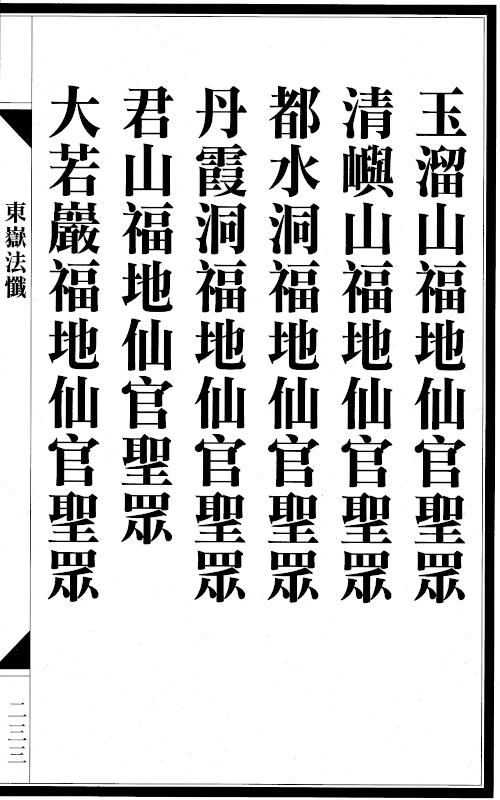 玉溜山福地仙官聖眾
清嶼山福地仙官聖眾
都水洞福地仙官聖眾
丹霞洞福地仙官聖眾
君山福地仙官聖眾
大若巖福地仙官聖眾
東嶽法懺
二三三